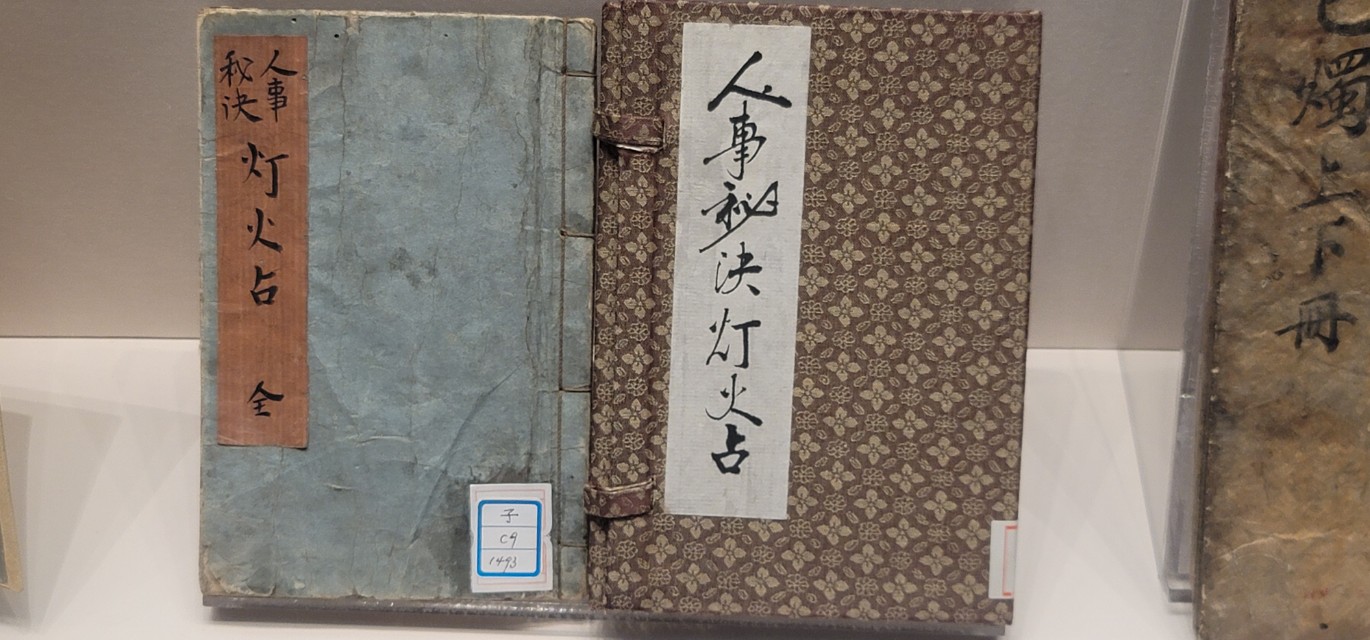 人事
秘決
灯火占
全
子
C9
1493
人事秘决灯火占
燭上下冊